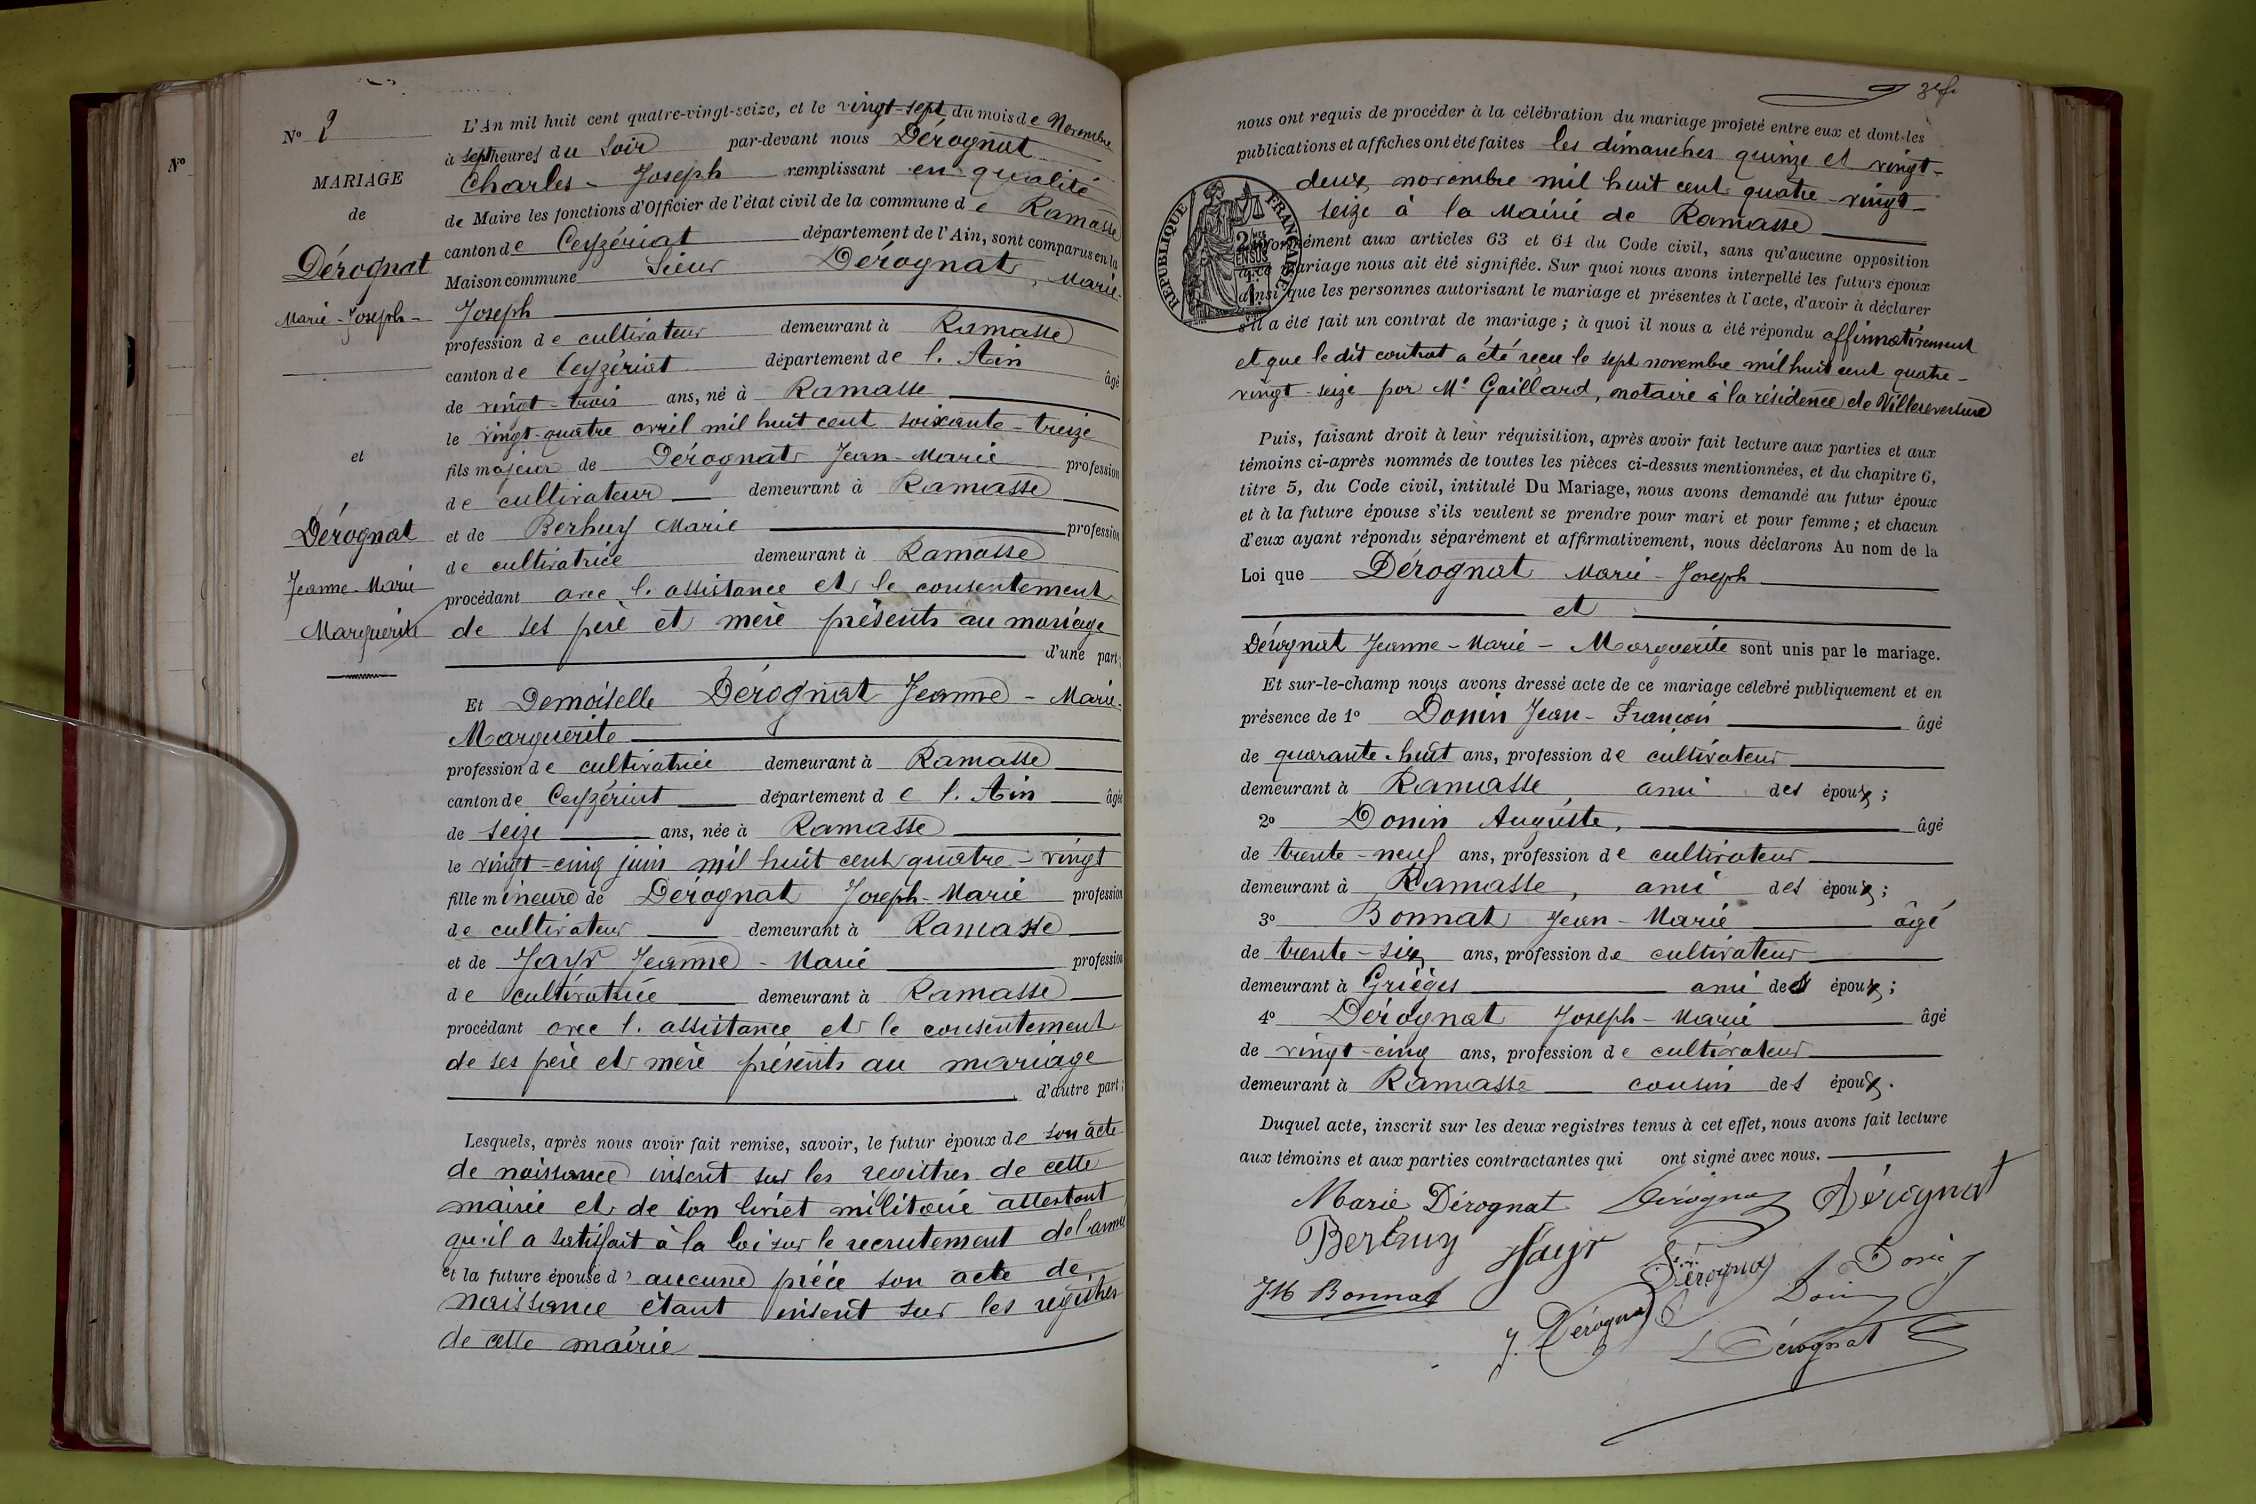 Nº
Nº 2
MARIAGE
de
Dérognat
Marie-Joseph-
et
Dérognat
Jeanne-Marie
Marguerite
L'An mil huit cent quatre-vingt-seize, et le vingt-sept du mois de Novembre
à sept heures du soir par-devant nous Dérognat
Charles-Joseph remplissant en qualité
de Maire les fonctions d'Officier de l'état civil de la commune de Ramasse
canton de Ceyzériat département de l'Ain, sont comparus en la
Maison commune Sieur Dérognat, Marie-
Joseph
profession de cultivateur demeurant à Ramasse
canton de Ceyzériat département de l'Ain âgé
de vingt-trois ans, né à Ramasse
le vingt-quatre avril mil huit cent soixante-treize
fils majeur de Dérognat Jean-Marie profession
de cultivateur demeurant à Ramasse
et de Berhuy Marie profession
de cultivatrice demeurant à Ramasse
procédant avec l'assistance et le consentement
de ses père et mère présents au mariage
d'une part;
Et Demoiselle Dérognat Jeanne-Marie-
Marguerite
profession de cultivatrice demeurant à Ramasse
canton de Ceyzériat département de l'Ain âgée
de seize ans, née à Ramasse
le vingt-cinq juin mil huit cent quatre-vingt
fille mineure de Dérognat Joseph-Marie profession
de cultivateur demeurant à Ramasse
et de Jayr Jeanne-Marie profession
de cultivatrice demeurant à Ramasse
procédant avec l'assistance et le consentement
de ses père et mère présents au mariage
d'autre part;
Lesquels, après nous avoir fait remise, savoir, le futur époux de son acte
de naissance inscrit sur les registres de cette
mairie et de son livret militaire attestant
qu'il a satisfait à la loi sur le recrutement de l'armée
et la future épouse d'aucune pièce son acte de
naissance étant inscrit sur les registres
de cette mairie
nous ont requis de procéder à la célébration du mariage projeté entre eux et dont les
publications et affiches ont été faites les dimanches quinze et vingt-
deux novembre mil huit cent quatre-vingt-
seize à la Mairie de Ramasse
RÉPUBLIQUE FRANÇAISE
conformément aux articles 63 et 64 du Code civil, sans qu'aucune opposition
à ce mariage nous ait été signifiée. Sur quoi nous avons interpellé les futurs époux
ainsi que les personnes autorisant le mariage et présentes à l'acte, d'avoir à déclarer
s'il a été fait un contrat de mariage; à quoi il nous a été répondu affirmativement
et que le dit contrat a été reçu le sept novembre mil huit cent quatre-
vingt-seize par Me Gaillard, notaire à la résidence de Villereversure
Puis, faisant droit à leur réquisition, après avoir fait lecture aux parties et aux
témoins ci-après nommés de toutes les pièces ci-dessus mentionnées, et du chapitre 6,
titre 5, du Code civil, intitulé Du Mariage, nous avons demandé au futur époux
et à la future épouse s'ils veulent se prendre pour mari et pour femme; et chacun
d'eux ayant répondu séparément et affirmativement, nous déclarons Au nom de la
Loi que Dérognat Marie-Joseph
et
Dérognat Jeanne-Marie-Marguerite sont unis par le mariage.
Et sur-le-champ nous avons dressé acte de ce mariage célébré publiquement et en
présence de 1º Donin Jean-François âgé
de quarante-huit ans, profession de cultivateur
demeurant à Ramasse, ami des époux;
2º Donin Auguste, âgé
de trente-neuf ans, profession de cultivateur
demeurant à Ramasse, ami des époux;
3º Bonnat Jean-Marie âgé
de trente-six ans, profession de cultivateur
demeurant à Grièges ami des époux;
4º Dérognat Joseph-Marie âgé
de vingt-cinq ans, profession de cultivateur
demeurant à Ramasse cousin des époux.
Duquel acte, inscrit sur les deux registres tenus à cet effet, nous avons fait lecture
aux témoins et aux parties contractantes qui ont signé avec nous.
Marie Dérognat Dérognat Dérognat
Berhuy Jayr Dérognat Donin
JM Bonnat Donin
J. Dérognat Dérognat